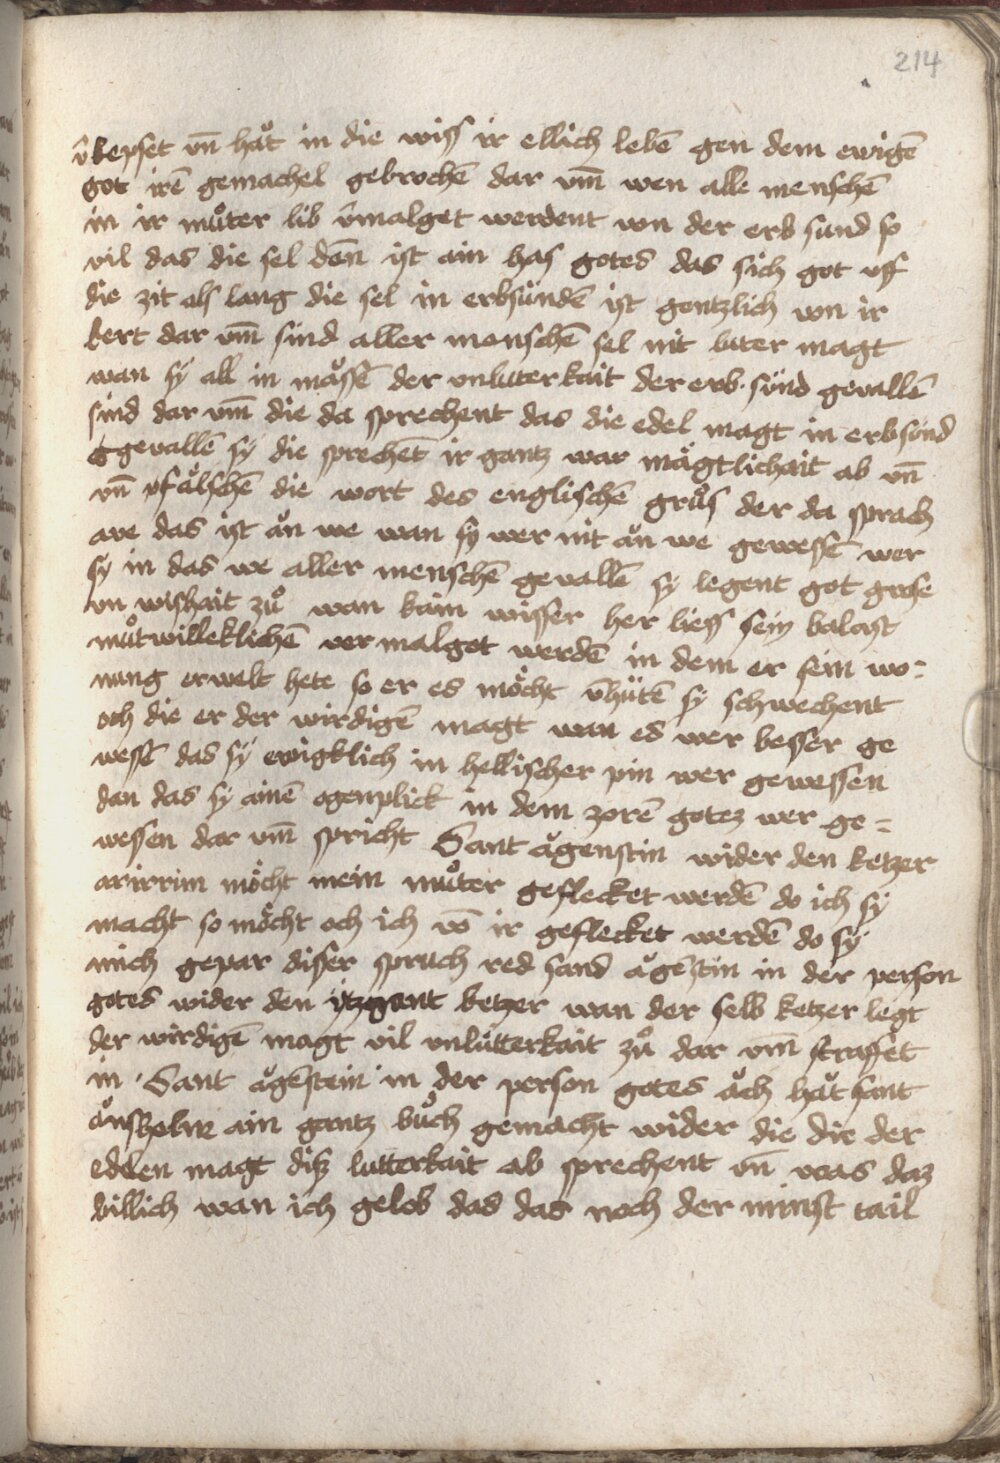 214
v̄kepset vn̄ hǎt in die wiss ir ellich lebē gen dem ewigē
got irē gemachel gebrochē dar vm̄ wen alle menschē
in ir můter lib v̄malget werdent von der erb sund so
vil das die sel den̄ ist ain has gotes das sich got vff
die zit als lang die sel in erbsündē ist gentzlich von ir
kert dar vm̄ sind aller menschē sel nit luter magt
wan sÿ all in mǎssē der vnluterkait der erb sünd gevallē
sind dar vm̄ die da sprechent das die edel magt in erbsünd
gevallē sÿ die sprechēt ir gantz war mägtlichait ab vn̄
vn̄ v̄fälschē die wort des englischē grůs der da sprach
ave das ist ǎn we wan sÿ wer nit ǎn we gewessē wer
sÿ in das we aller menschē gevallē sÿ legent got grose
vn wishait zů wan kain wisser her liess sein balast
můtwilleklichē vermalget werdē in dem er sein wo-
nung erwelt hete so er es möcht v̄hütē sÿ schwechent
och die er der wirdigē magt wan es wer besser ge
wessē das sÿ ewigklich in hellischer pin wer gewessen
dan das sÿ ainē ogenplick in dem zorē gotez wer ge-
wessen dar vm̄ spricht Sant ǎgenstin wider den ketzer
möcht mein můter geflecket werdē do ich sÿ
macht so möcht och ich vō ir geflecket werdē do sÿ
mich gepar diser spruch red sand ǎgēstin in der person
gotes wider den ketzer wan der selb ketzer legt
der wirdigē magt vil vnlutterkait zů dar vm̄ straffet
in Sant ǎgēstein in der person gotes ǎch hǎt sant
ǎnshelm ain gantz bůch gemacht wider die die der
edlen magt disz lutterkait ab sprechent vn̄ was daz
billich wan ich gelob das das noch der minst tail